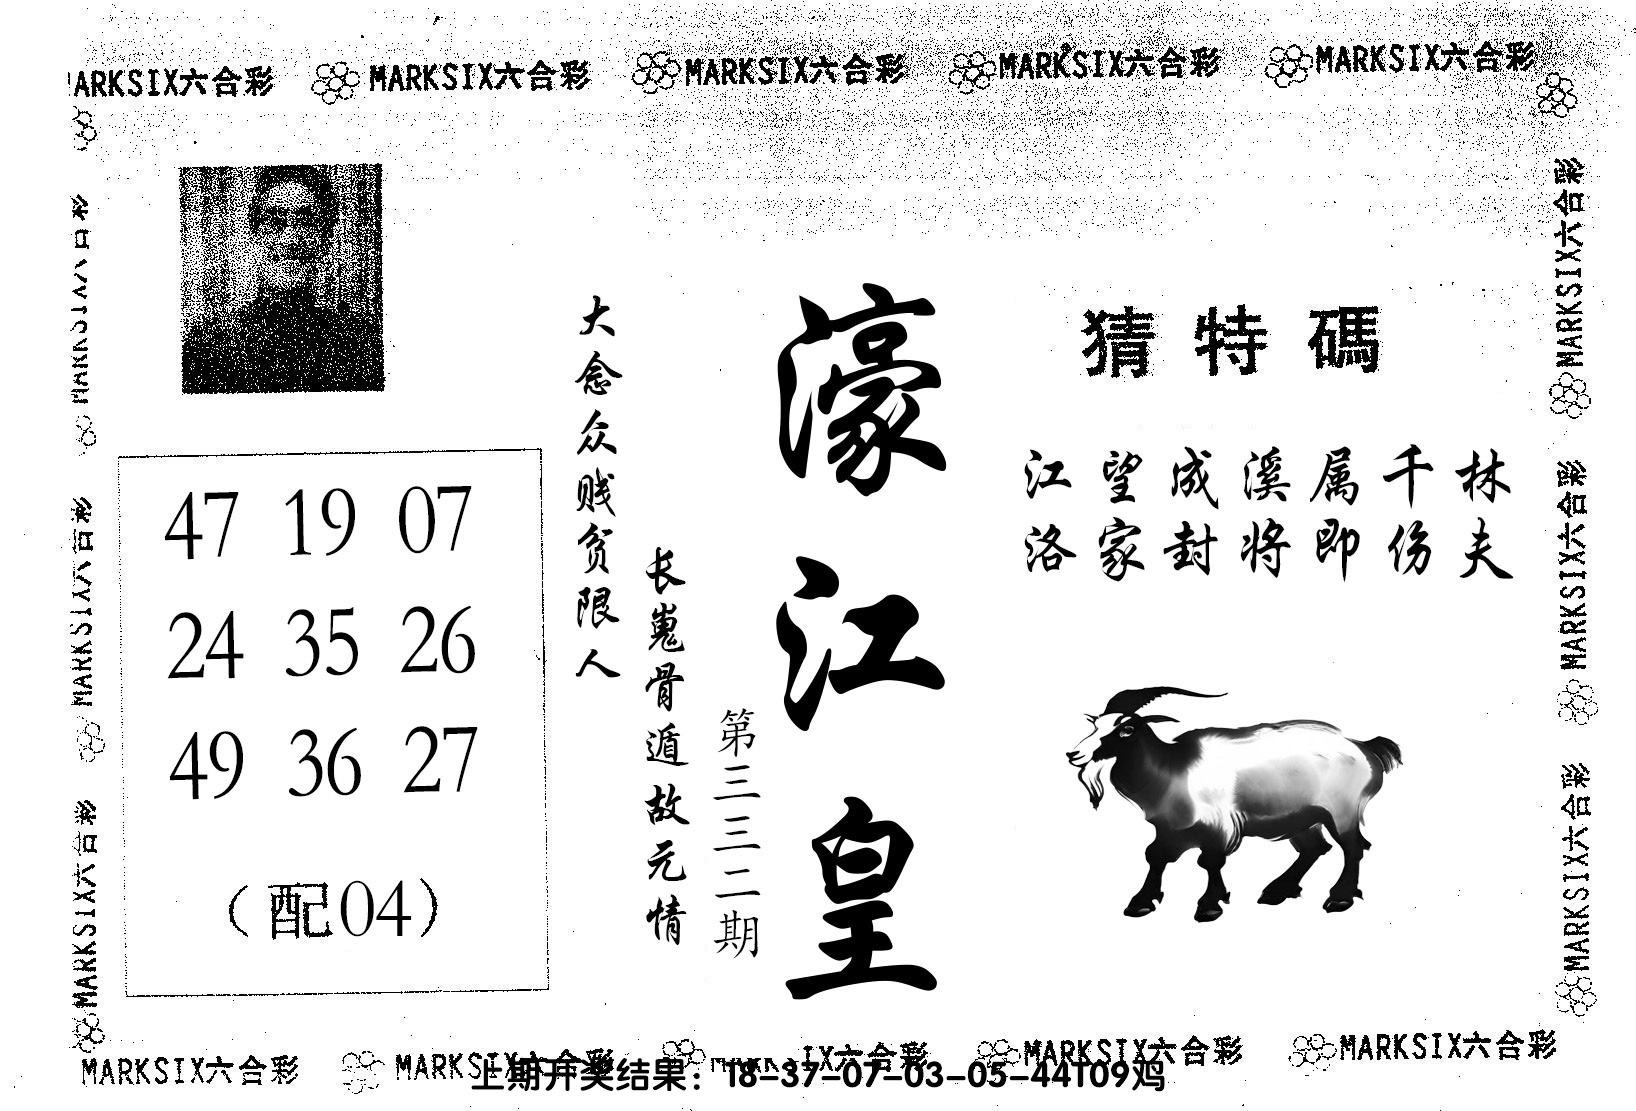 MARKSIX六合彩 MARKSIX六合彩 MARKSIX六合彩 MARKSIX六合彩 MARKSIX六合彩
MARKSIX六合彩
MARKSIX六合彩
MARKSIX六合彩
47 19 07
24 35 26
49 36 27
(配04)
大念众贱贫限人
长嵬骨遁故元情
第三三二期
濠江皇
猜特碼
江望成溪属千林
洛家封将即伤夫
MARKSIX六合彩
MARKSIX六合彩
MARKSIX六合彩
MARKSIX六合彩 MARKSIX六合彩 IX六合彩 MARKSIX六合彩 MARKSIX六合彩
上期开奖结果：18-37-07-03-05-44T09鸡